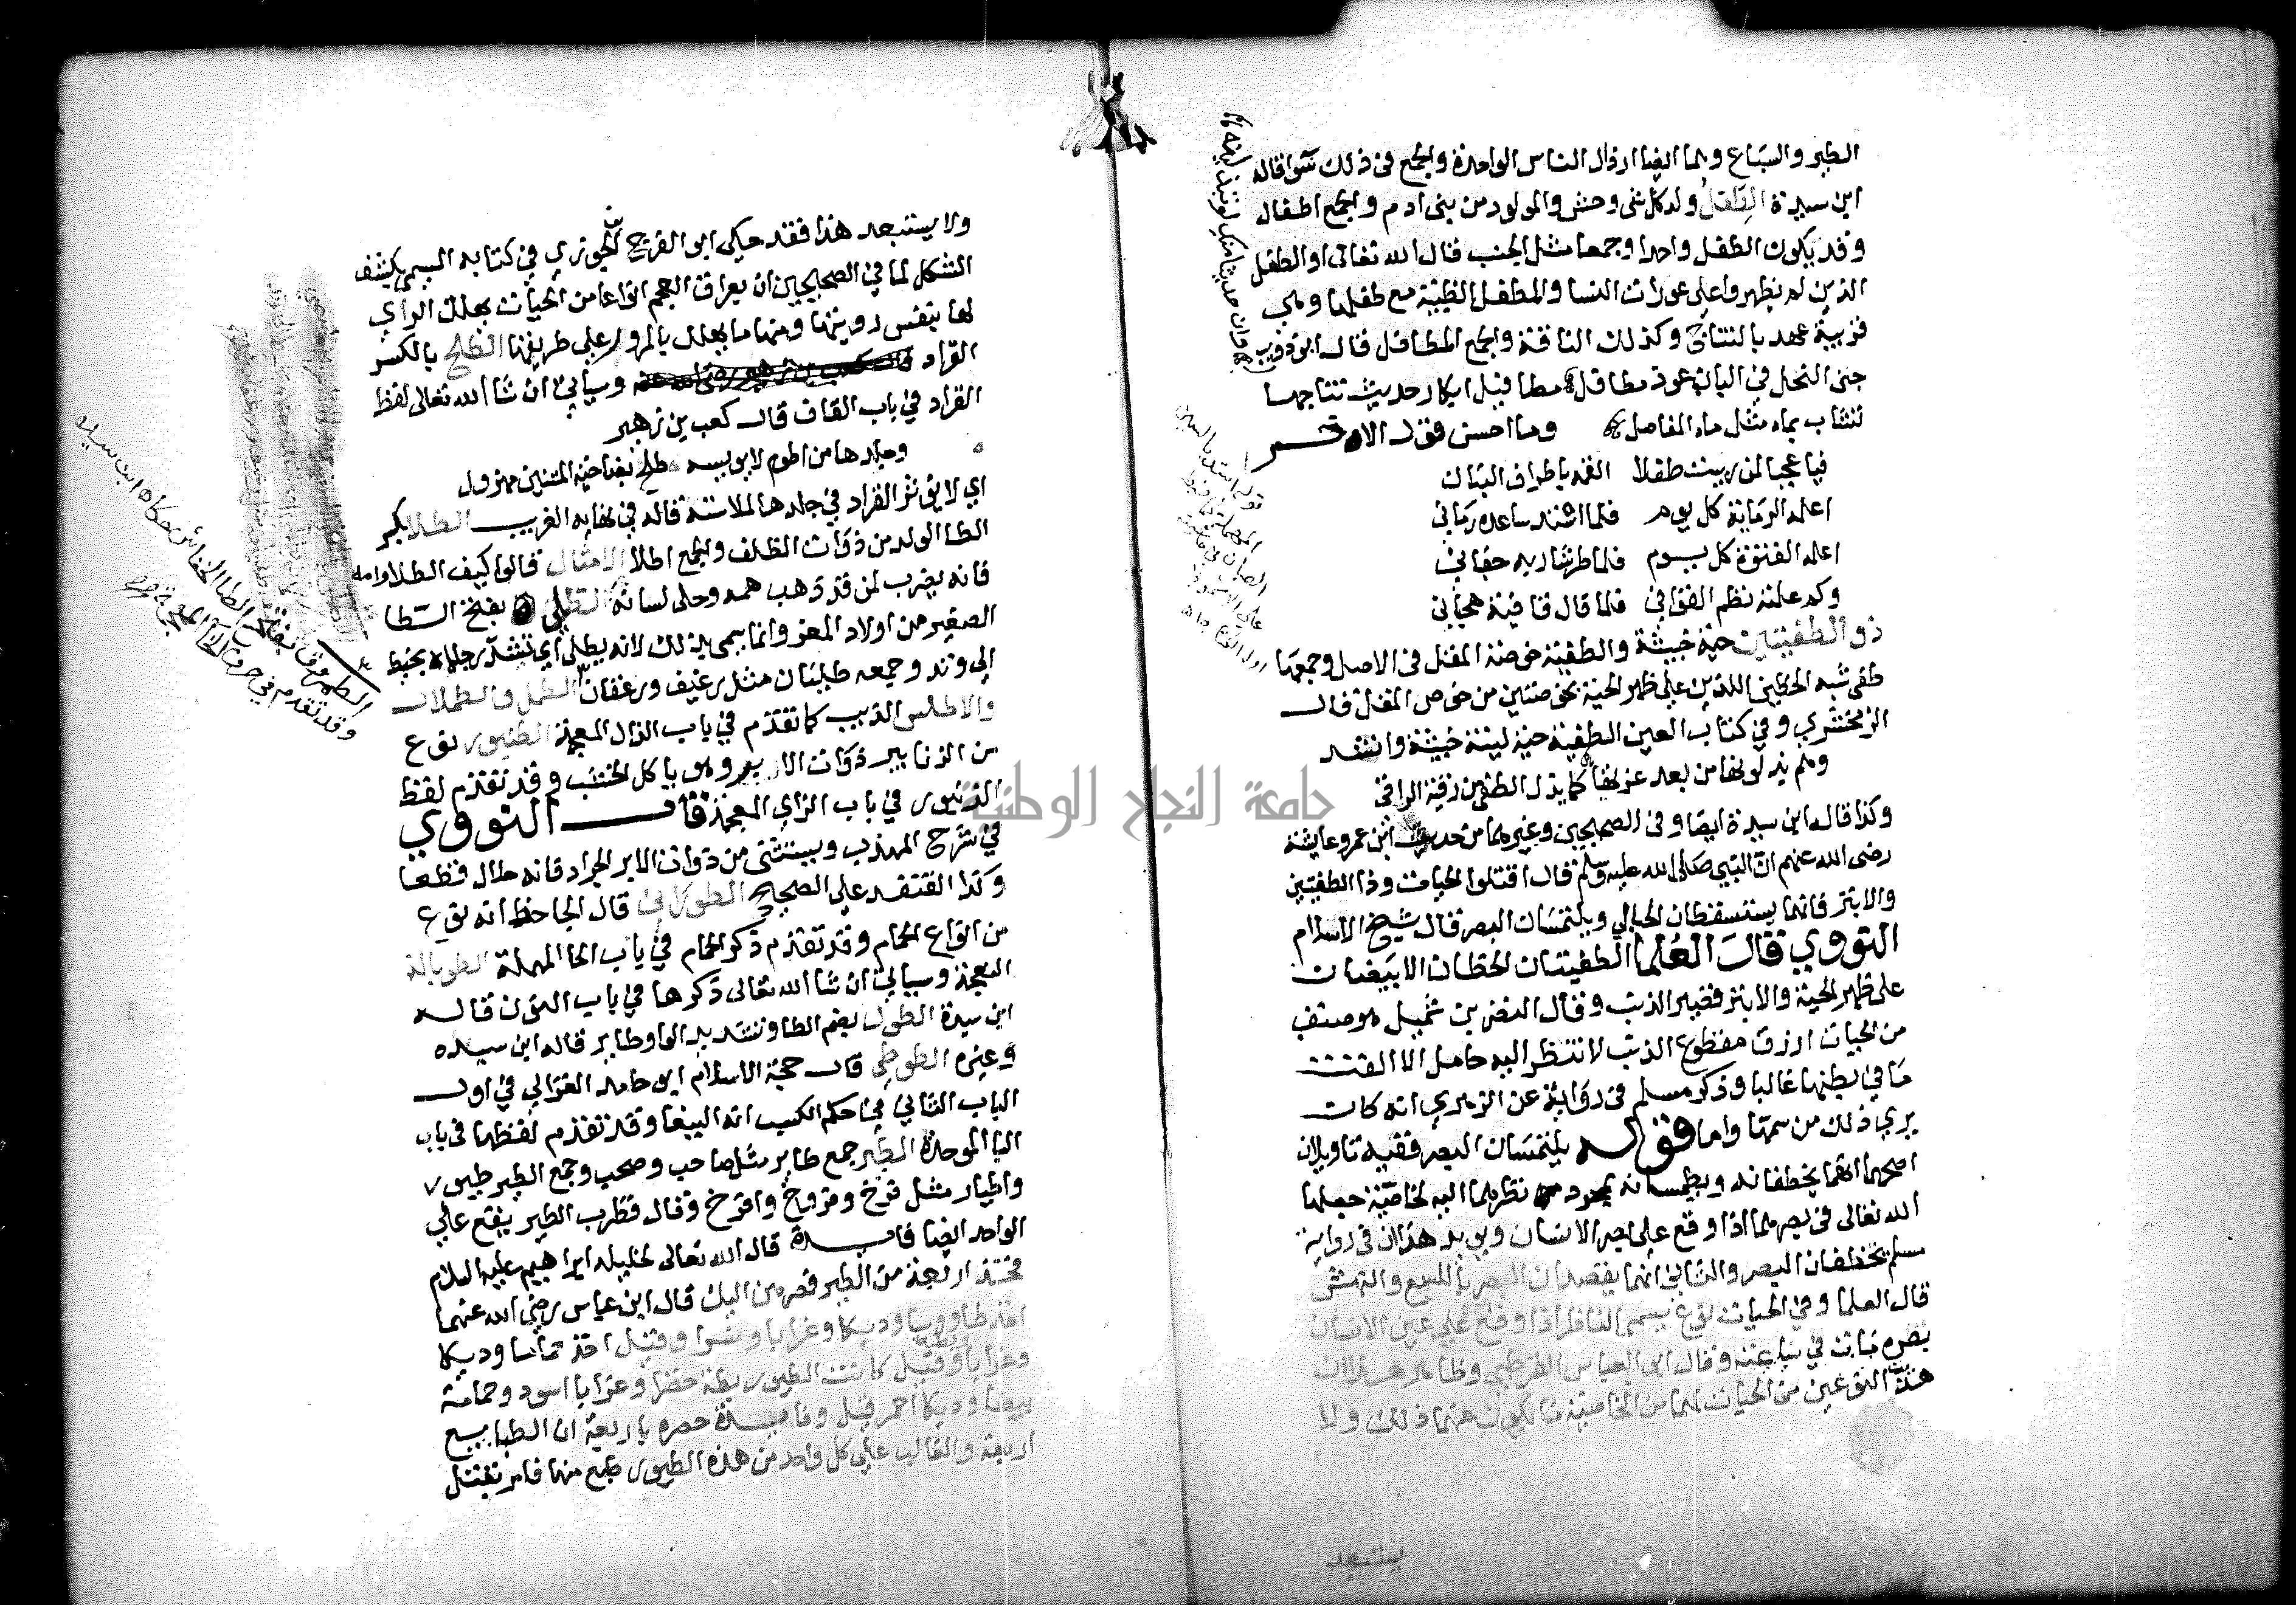 الطير والسباع وهما ايضا ارذال الناس الواحدة والجمع في ذلك سوا قاله
ابن سيدة الطفل ولد كل شي وحش والمولود من بني ادم والجمع اطفال
وقد يكون الطفل واحدا وجمعا مثل الجنب قال الله تعالى او الطفل
الذين لم يظهروا على عورات النسا والمطفل الظبية مع طفلها وهي
قريبة عهد بالنتاج وكذلك الناقة والجمع المطافل قال ابو ذويب
وان حديثا منك لو تبذلينه
جنى النحل في البان عوذ مطافل مطافيل ابكار حديث نتاجها
تشاب بماء مثل ماء المفاصل وما احسن قول الاخر
فيا عجبا لمن ربيت طفلا القمه باطراف البنان
اعلمه الرماية كل يوم فلما اشتد ساعده رماني
اعلمه الفتوة كل يوم فلما طر شاربه جفاني
وكم علمته نظم القوافي فلما قال قافية هجاني
ذو الطفيتين حية خبيثة والطفية خوصة المقل في الاصل وجمعها
طفى شبه الخطين اللذين على ظهر الحية بخوصتين من خوص المقل قال
الزمخشري وفي كتاب العين الطفية حية لينة خبيثة وانشد
وهم يذلونها من بعد عزتها كما تذل الطفى من رقية الراقي
وكذا قال ابن سيدة ايضا وفي الصحيحين وغيرهما من حديث ابن عمر وعايشة
رضى الله عنهم ان النبي صلى الله عليه وسلم قال اقتلوا الحيات وذا الطفيتين
والابتر فانهما يستسقطان الحبالى ويلتمسان البصر قال شيخ الاسلام
النووي قال العلما الطفيتان الخطان الابيضان
على ظهر الحية والابتر قصير الذنب وقال النضر بن شميل هو صنف
من الحيات ازرق مقطوع الذنب لا تنظر اليه حامل الا القت
ما في بطنها غالبا وذكر مسلم في رواية عن الزهري انه كان
يرى ذلك من سمها واما قوله يلتمسان البصر ففيه تاويلان
اصحهما انهما يخطفانه ويطمسانه بمجرد نظرهما اليه لخاصية جعلها
الله تعالى في بصرهما اذا وقع على بصر الانسان ويويد هذا ان في رواية
مسلم يخطفان البصر والثاني انهما يقصدان البصر باللسع والنهش
قال العلما وفي الحيات نوع يسمى الناظر اذا وقع على عين الانسان
بصره مات في ساعته وقال ابو العباس القرطبي وظاهر هذا ان
هذين النوعين من الحيات لهما من الخاصية ما يكون عنهما ذلك ولا
يستبعد
ولا يستبعد هذا فقد حكى ابو الفرج بن الجوزي في كتابه المسمى بكشف
المشكل لما في الصحيحين ان بعراق العجم انواعا من الحيات يهلك الراي
لها بنفس رويتها ومنها ما يهلك بالمرور على طريقها الطلح بالكسر
القراد وسيأتي ان شا الله تعالى لفظ
القراد في باب القاف قال كعب بن زهير
وجلدها من اطوم لا يويسه طلح بضاحية المتنين مهزول
اي لا يوثر القراد في جلدها لملاسته قاله في نهاية الغريب الطلا بكسر
الطا الولد من ذوات الظلف والجمع اطلا الامثال قالوا كيف الطلا وامه
فانه يضرب لمن قد ذهب همه وحلى لسانه الطلي بفتح الطا
الصغير من اولاد المعز وانما سمي بذلك لانه يطلى اي تشد رجلاه بخيط
الى وتد وجمعه طليان مثل رغيف ورغفان الطمل والطملال
والاطلس الذيب كما تقدم في باب الذال المعجمة الطنبور نوع
من الزنابير ذوات الابر وهو ياكل الخشب وقد تقدم لفظ
الزنبور في باب الزاي المعجمة قال النووي
في شرح المهذب ويستثنى من ذوات الابر الجراد فانه حلال قطعا
وكذا القنفد على الصحيح الطوراني قال الجاحظ انه نوع
من انواع الحمام وقد تقدم ذكر الحمام في باب الحا المهملة الطوبالة
النعجة وسياتي ان شا الله تعالى ذكرها في باب النون قاله
ابن سيدة الطول بضم الطا وتشديد الواو طاير قاله ابن سيده
وغيره الطوطي قال حجة الاسلام ابو حامد الغزالي في اول
الباب الثاني في احكم الكسب انه الببغا وقد تقدم لفظها في باب
البا الموحدة الطير جمع طاير مثل صاحب وصحب وجمع الطير طيور
واطيار مثل فرخ وفروخ وافرخ وقال قطرب الطير يقع على
الواحد ايضا فايدة قال الله تعالى لخليله ابراهيم عليه السلام
فخذ اربعة من الطير فصرهن اليك قال ابن عباس رضي الله عنهما
اخذ طاووسا وديكا وغرابا ونسرا وقيل اخذ حماما وديكا
وغرابا وبطة وقيل كانت الطيور بطة خضرا وغرابا اسود وحمامة
بيضا وديكا احمر قيل وفايدة حصره باربعة ان الطبايع
اربعة والغالب على كل واحد من هذه الطيور طبع منها فامر بقتل
الطمروق بفتح الطا الخفاش حكاه ابن سيده
وقد تقدم في حرف الخا المعجمة
جامعة النجاح الوطنية